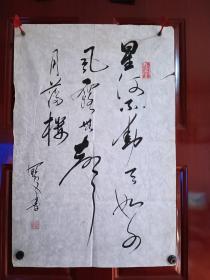 星河不動天如水
風露無聲
月滿樓